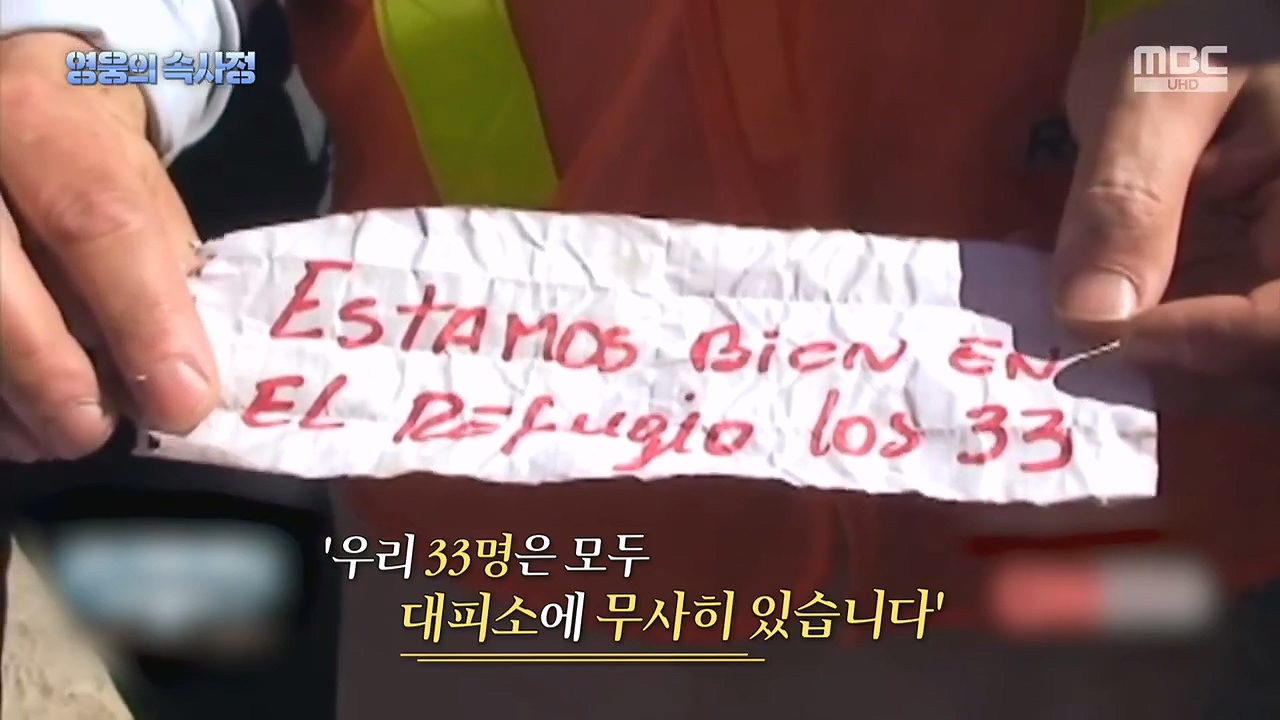 영웅의 속사정
MBC
UHD
ESTAMOS BIEN EN
EL REFugio los 33
'우리 33명은 모두
대피소에 무사히 있습니다'